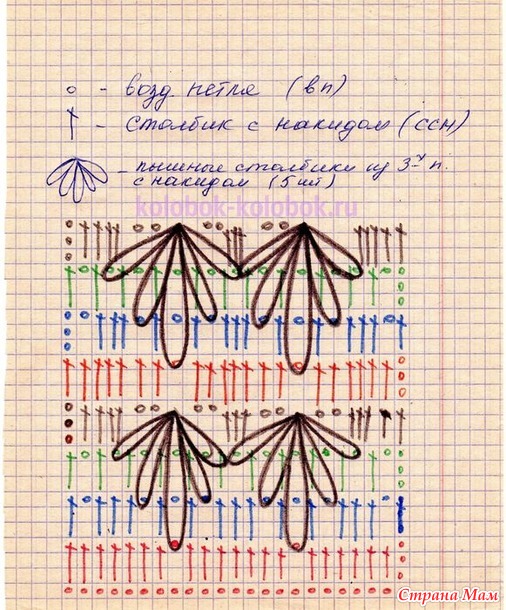 о - возд петля (вп)
† - столбик с накидом (ссн)
- пышные столбики из 3-х п.
с накидом (5 шт)
kolobok-kolobok.ru
Страна Мам